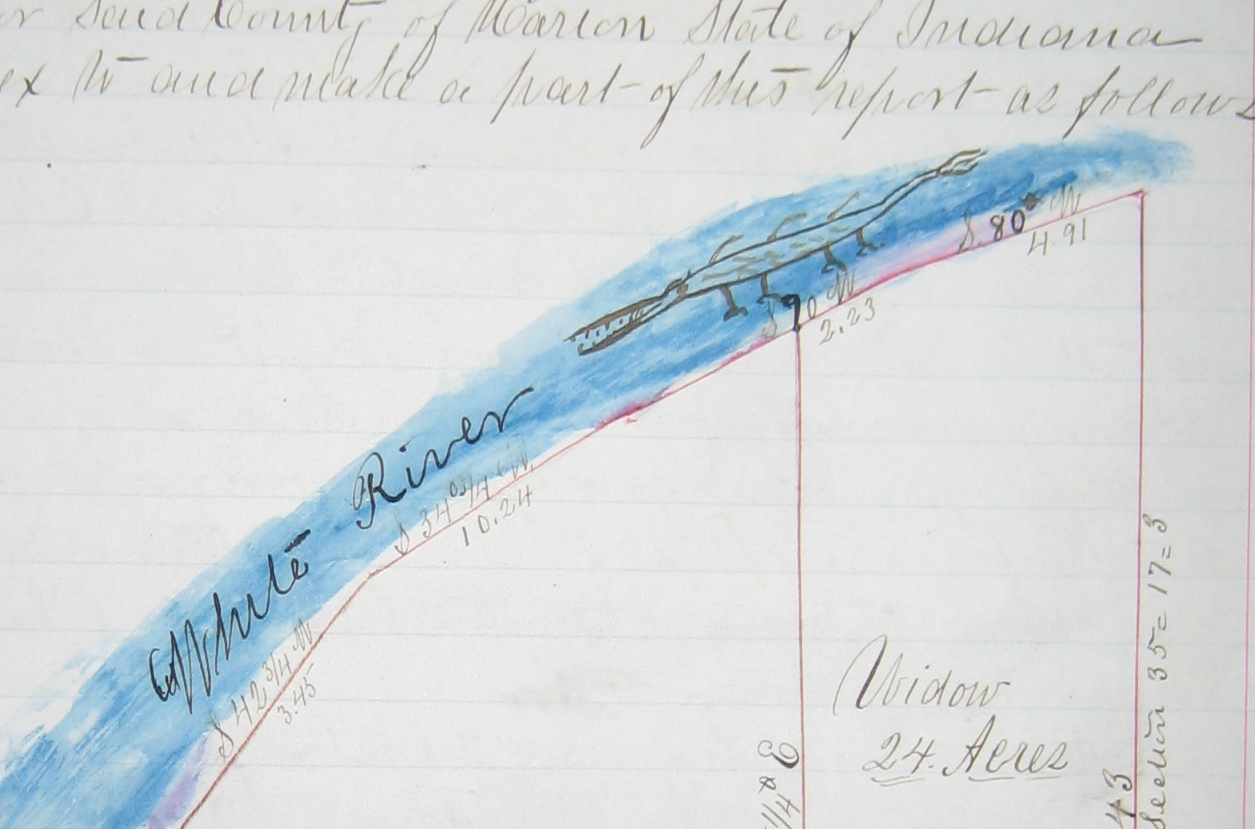 Said County of Marion State of Indiana
ex to and make a part of this report as follows
S. 80° W
4.91
S 70 W
2.23
White River
S 34 03/4 W
10.24
S 42 3/4 W
3.45
Widow
24. Acres
1/4° E
43
Section 35 = 17 = 3